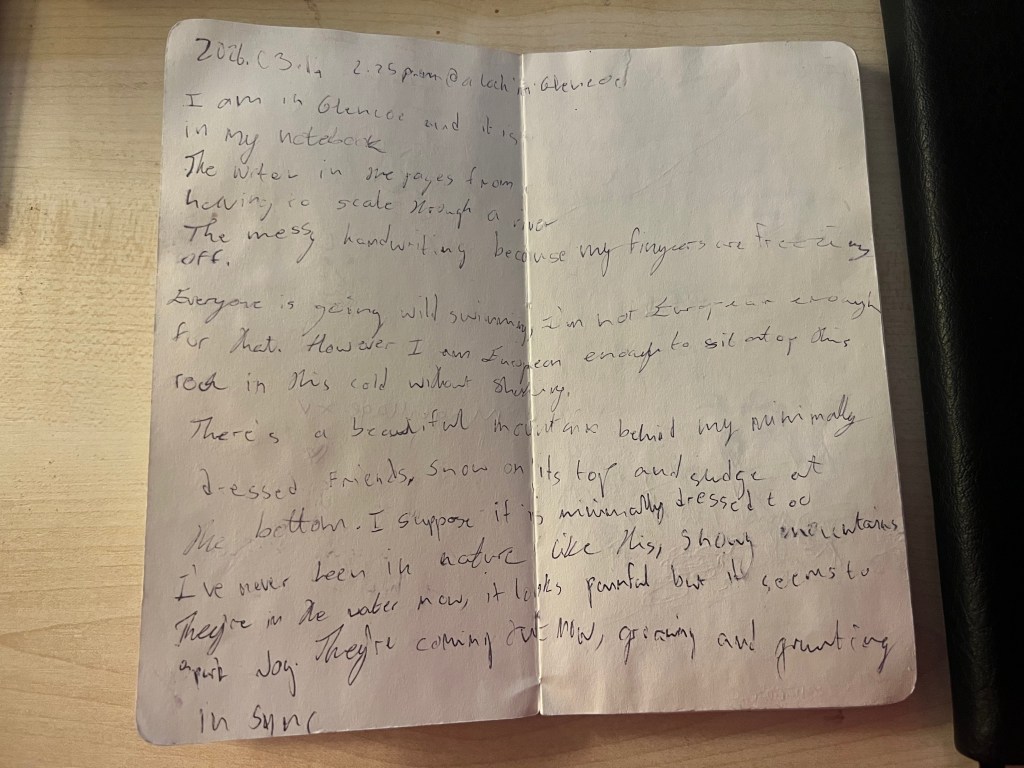 2026.03.1 2.25pm @ a loch in Glencoe
I am in Glencoe and it is
in my notebook
The water in the pages from
having to scale through a river
The messy handwriting because my fingers are freezing
off.
Everyone is going wild swimming, I'm not European enough
for that. However I am European enough to sit atop this
rock in this cold without shivering.
There's a beautiful mountain behind my minimally
dressed friends, snow on its top and sludge at
the bottom. I suppose it is minimally dressed too
I've never been in nature like this, snowy mountains
They're in the water now, it looks painful but it seems to
spark joy. They're coming out now, groaning and grunting
in sync